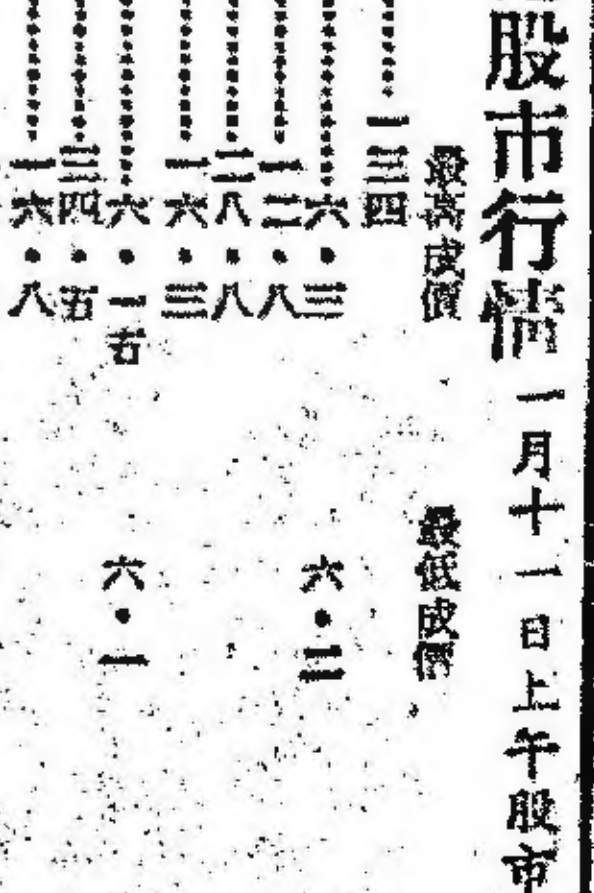 股市行情 一月十一日上午股市
最高成價 最低成價
一三四
六·三 六·二
一二·八
二八·八
一六·三
六·一五 六·一
三四·五
一六·八